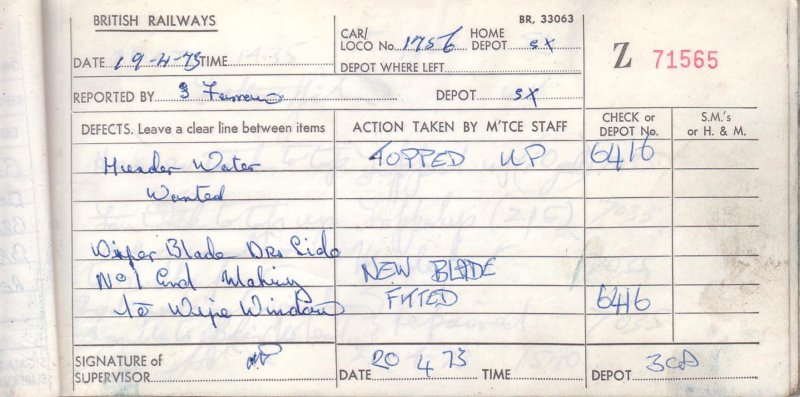 BRITISH RAILWAYS
BR, 33063
DATE 19-4-73 TIME
CAR/ LOCO No. 1756 HOME DEPOT SX
DEPOT WHERE LEFT
Z 71565
REPORTED BY S DEPOT SX
DEFECTS. Leave a clear line between items
ACTION TAKEN BY M'TCE STAFF
CHECK or DEPOT No.
S.M.'s or H. & M.
Header Water TOPPED UP 6416
Wanted
Wiper Blade Drs Side
No 1 End Making NEW BLADE
to Wipe Window FITTED 6416
SIGNATURE of SUPERVISOR
DATE 20 4 73 TIME DEPOT